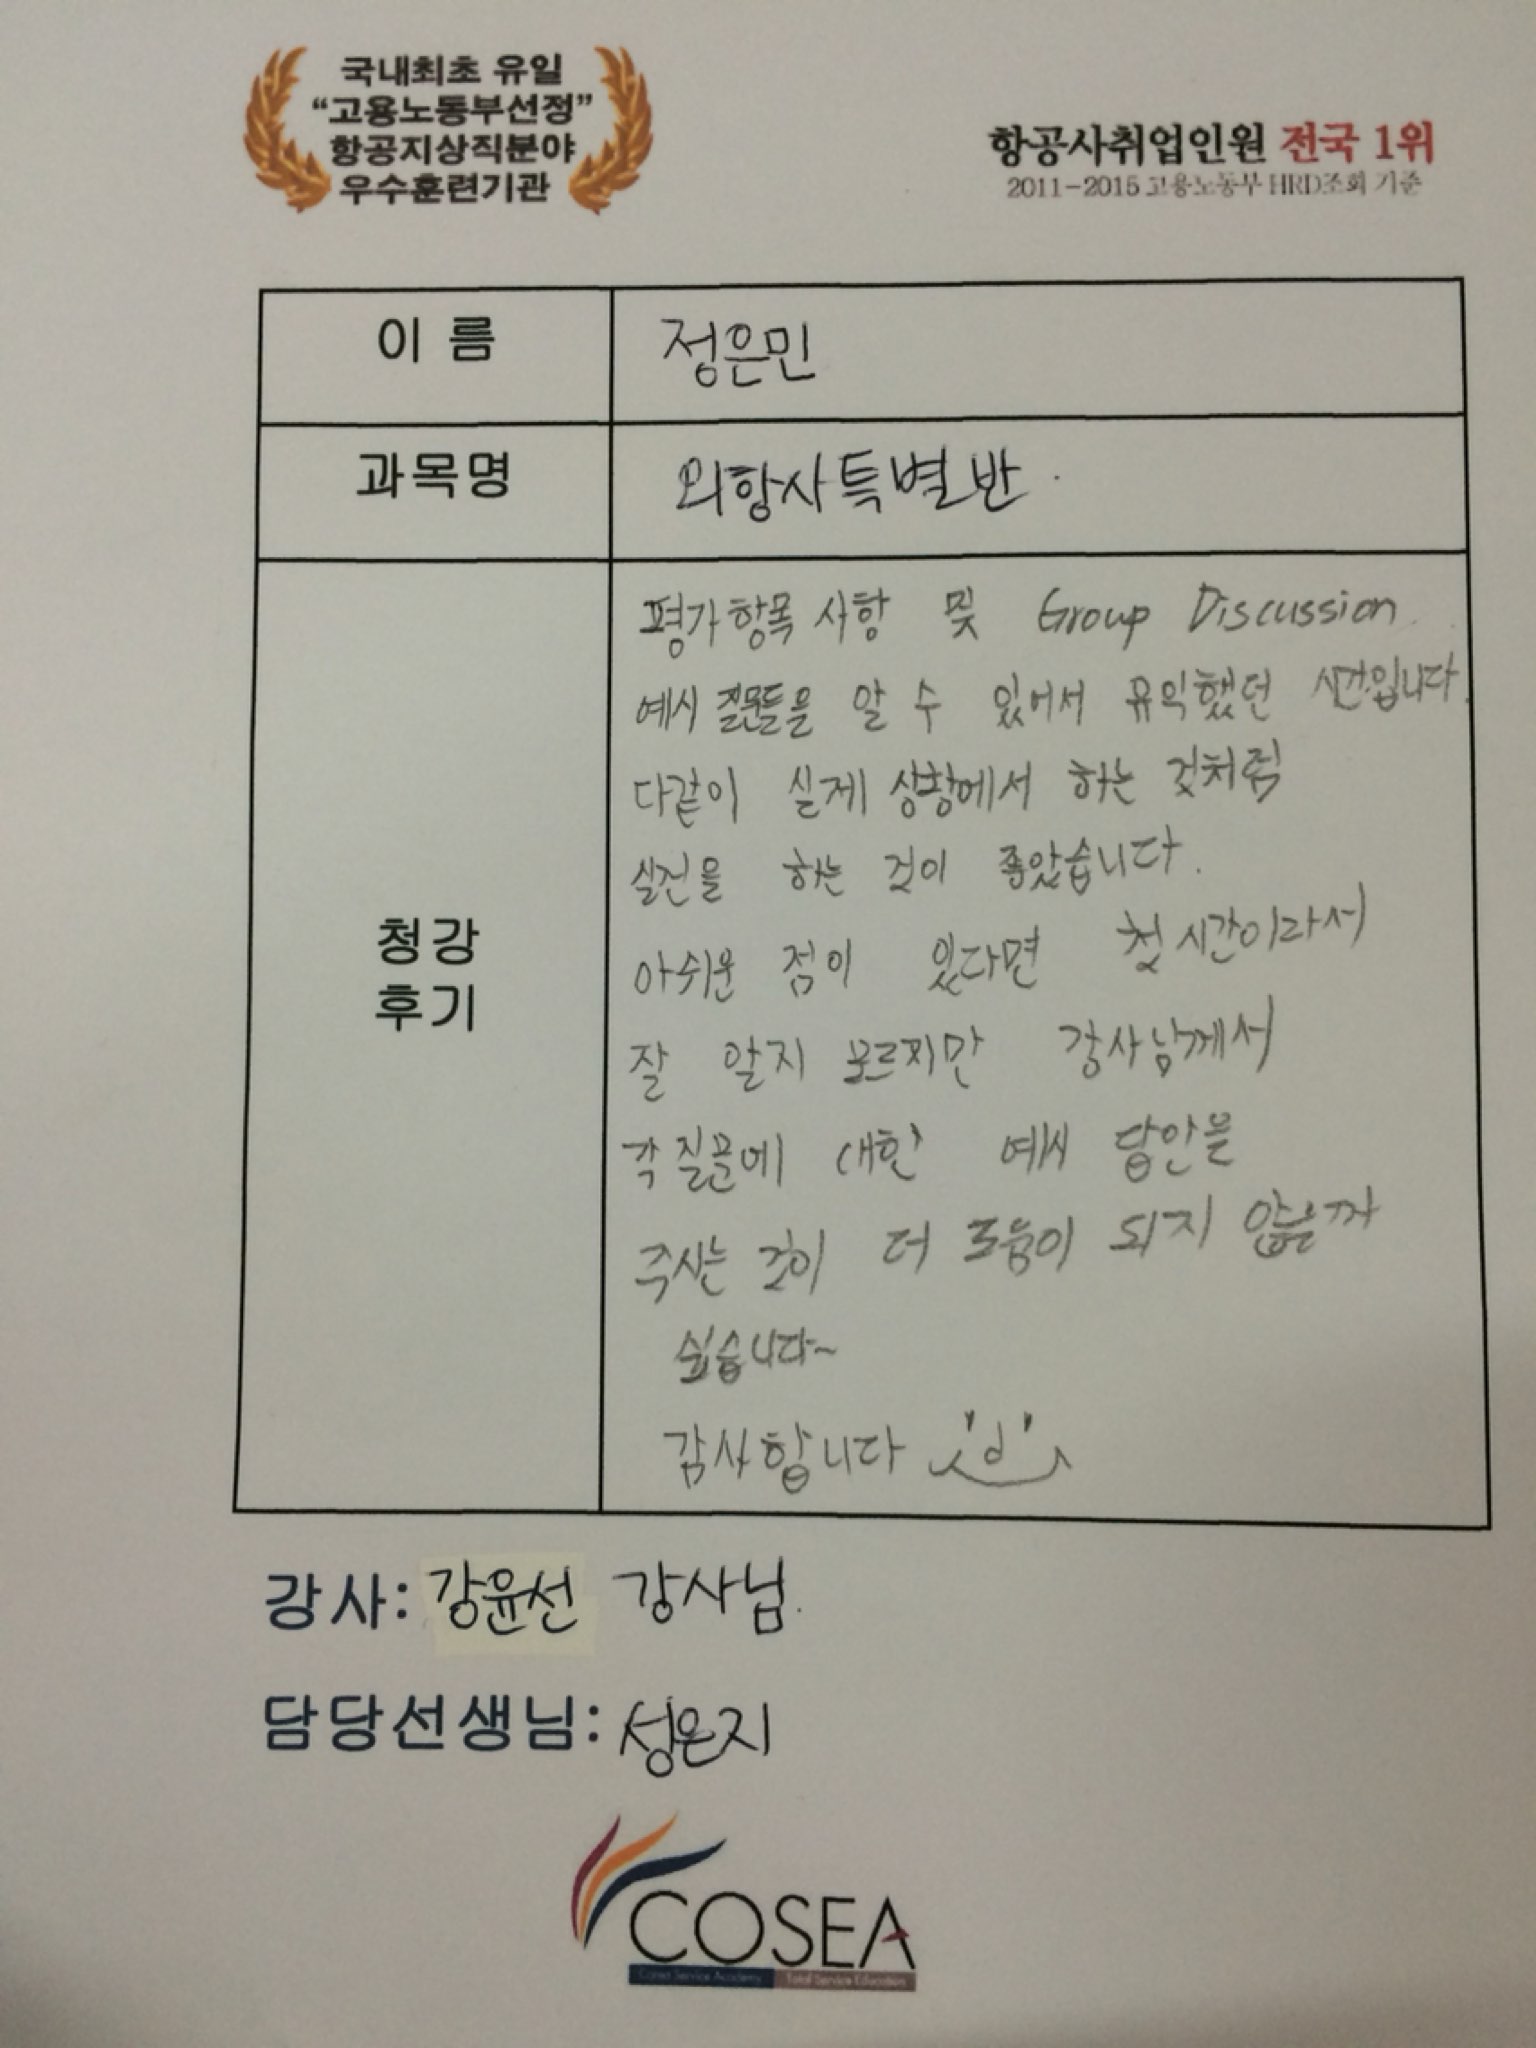 국내최초 유일
“고용노동부선정”
항공지상직분야
우수훈련기관
항공사취업인원 전국 1위
2011-2015 고용노동부 HRD조회 기준
이 름
정은민
과목명
외항사특별반.
청강
후기
평가항목 사항 및 Group Discussion
예시 질문들을 알 수 있어서 유익했던 시간입니다.
다같이 실제 상황에서 하는 것처럼
실전을 하는 것이 좋았습니다.
아쉬운 점이 있다면 첫 시간이라서
잘 알지 모르지만 강사님께서
각 질문에 대한 예시 답안을
주시는 것이 더 도움이 되지 않을까
싶습니다~
감사합니다
강사: 강윤선 강사님.
담당선생님: 성은지
COSEA
Corea Service Academy Total Service Education